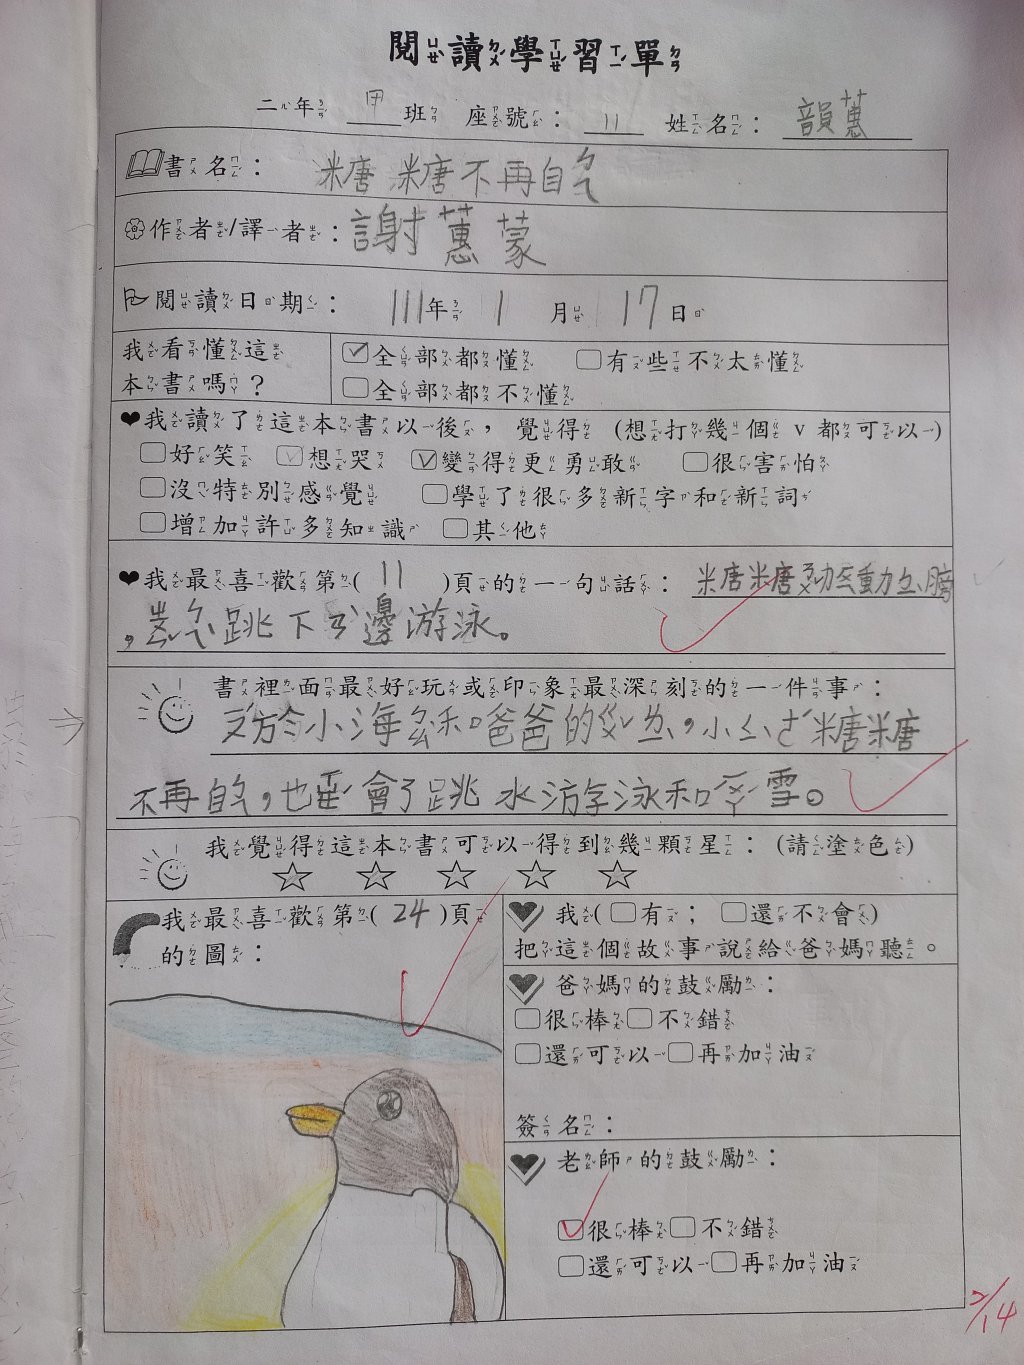 閱讀學習單
二年 甲 班 座號： 11 姓名： 韻蕙
書名： 糖糖不再自ㄅㄟ
作者/譯者： 謝蕙蒙
閱讀日期： 111年 1 月 17日
我看懂這本書嗎？
✓全部都懂 □有些不太懂
□全部都不懂
❤我讀了這本書以後，覺得 (想打幾個 v 都可以)
□好笑 ✓想哭 ✓變得更勇敢 □很害怕
□沒特別感覺 □學了很多新字和新詞
□增加許多知識 □其他
❤我最喜歡第( 11 )頁的一句話：
跳下 邊游泳。
書裡面最好玩或印象最深刻的一件事：
小海 和 爸爸的 ，小 糖糖
不再自 ，也 會了跳水游泳和 雪。
我覺得這本書可以得到幾顆星：(請塗色)
☆ ☆ ☆ ☆ ☆
我最喜歡第( 24 )頁
的圖：
我(□有；□還不會)
把這個故事說給爸媽聽。
爸媽的鼓勵：
□很棒□不錯
□還可以□再加油
簽名：
老師的鼓勵：
✓很棒□不錯
□還可以□再加油
2/14